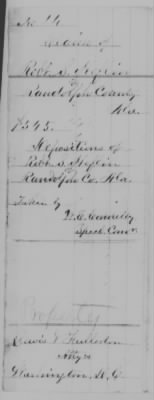 No 14
Claim of
Robt. S. Heflin
Randolph County
Ala.
8545.
Depositions of
Robt. S. Heflin
Randolph Co. Ala.
Taken by
Specl. Com
Property
Atty
Washington, D.C.